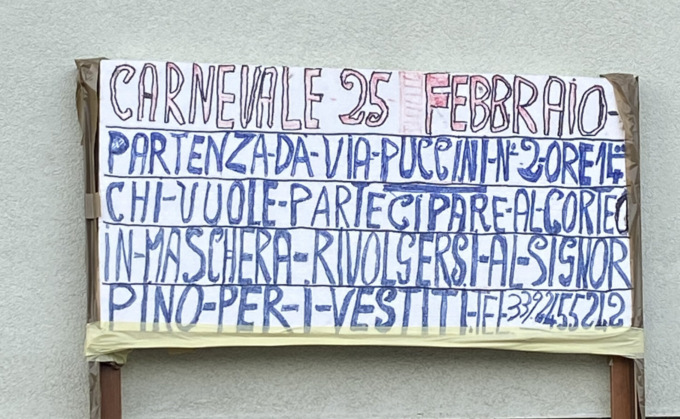 CARNEVALE 25 FEBBRAIO-
PARTENZA-DA-VIA-PUCCINI-N°2-ORE14=
CHI-VUOLE-PARTECIPARE-AL-CORTEO
IN-MASCHERA-RIVOLGERSI-AL-SIGNOR
PINO-PER-I-VESTITI-TEL-3392455212